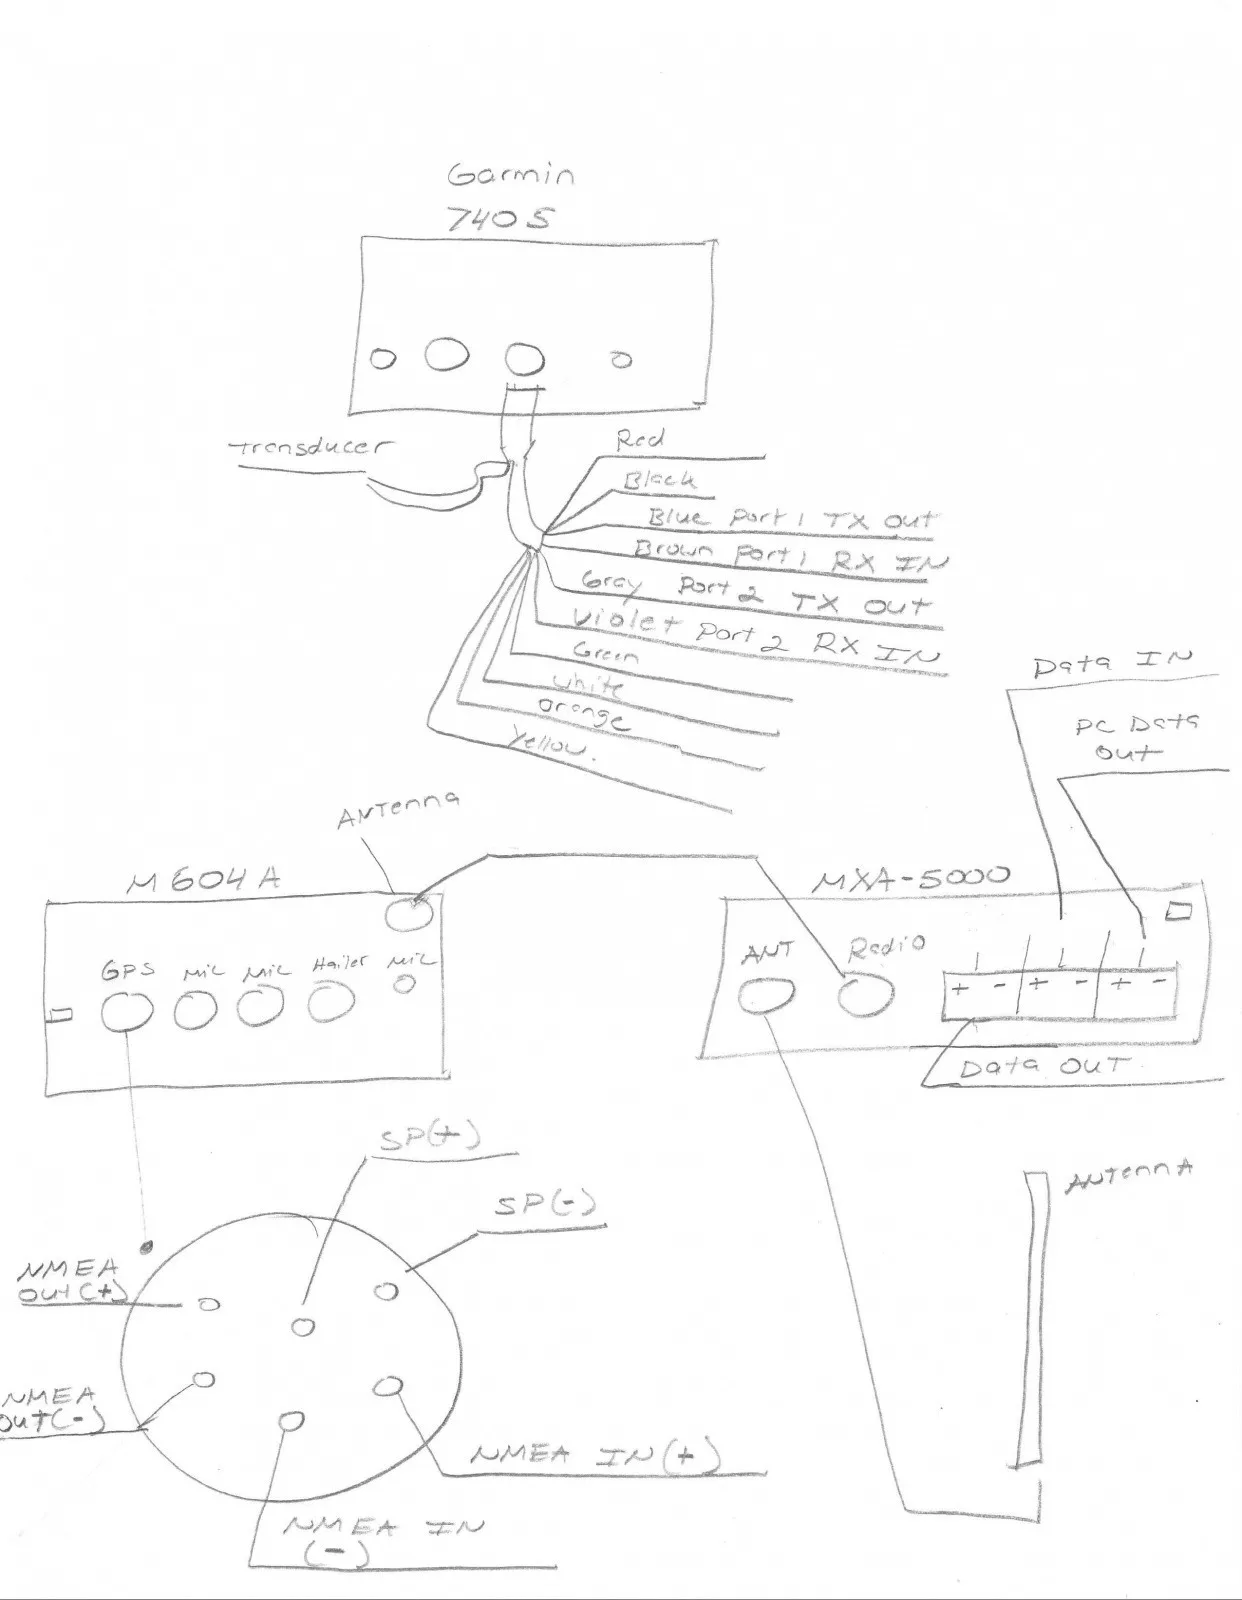 Garmin
740S
Transducer
Red
Black
Blue Port 1 TX Out
Brown Port 1 RX IN
Gray Port 2 TX Out
Violet Port 2 RX IN
Green
White
Orange
Yellow.
Data IN
PC Data
Out
ANTenna
M604A
GPS
Mic
Mic
Hailer
Mic
MXA-5000
ANT
Radio
+ - + - + -
Data OUT
SP(+)
SP(-)
NMEA
Out(+)
NMEA
Out(-)
NMEA IN(+)
NMEA IN
(-)
ANTENNA